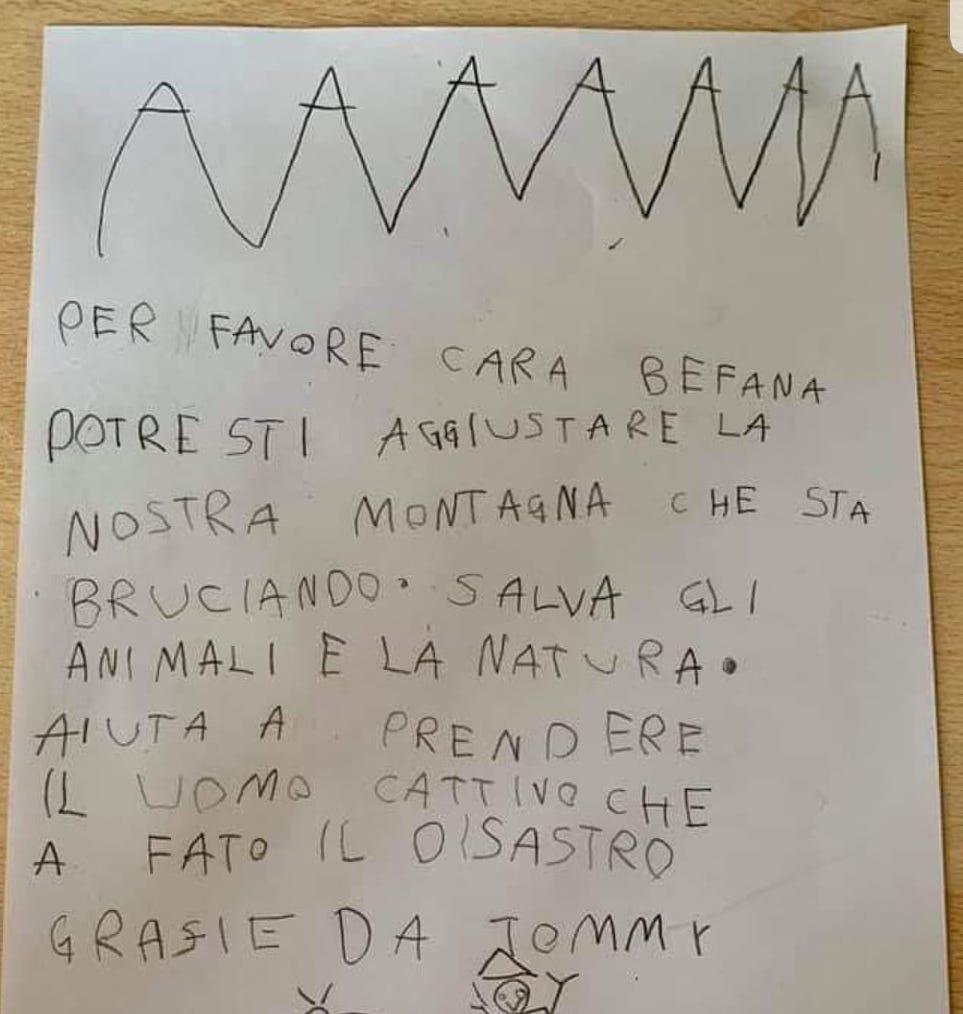 PER FAVORE CARA BEFANA
POTRESTI AGGIUSTARE LA
NOSTRA MONTAGNA CHE STA
BRUCIANDO. SALVA GLI
ANIMALI E LA NATURA.
AIUTA A PRENDERE
IL UOMO CATTIVO CHE
A FATO IL DISASTRO
GRASIE DA TOMMY